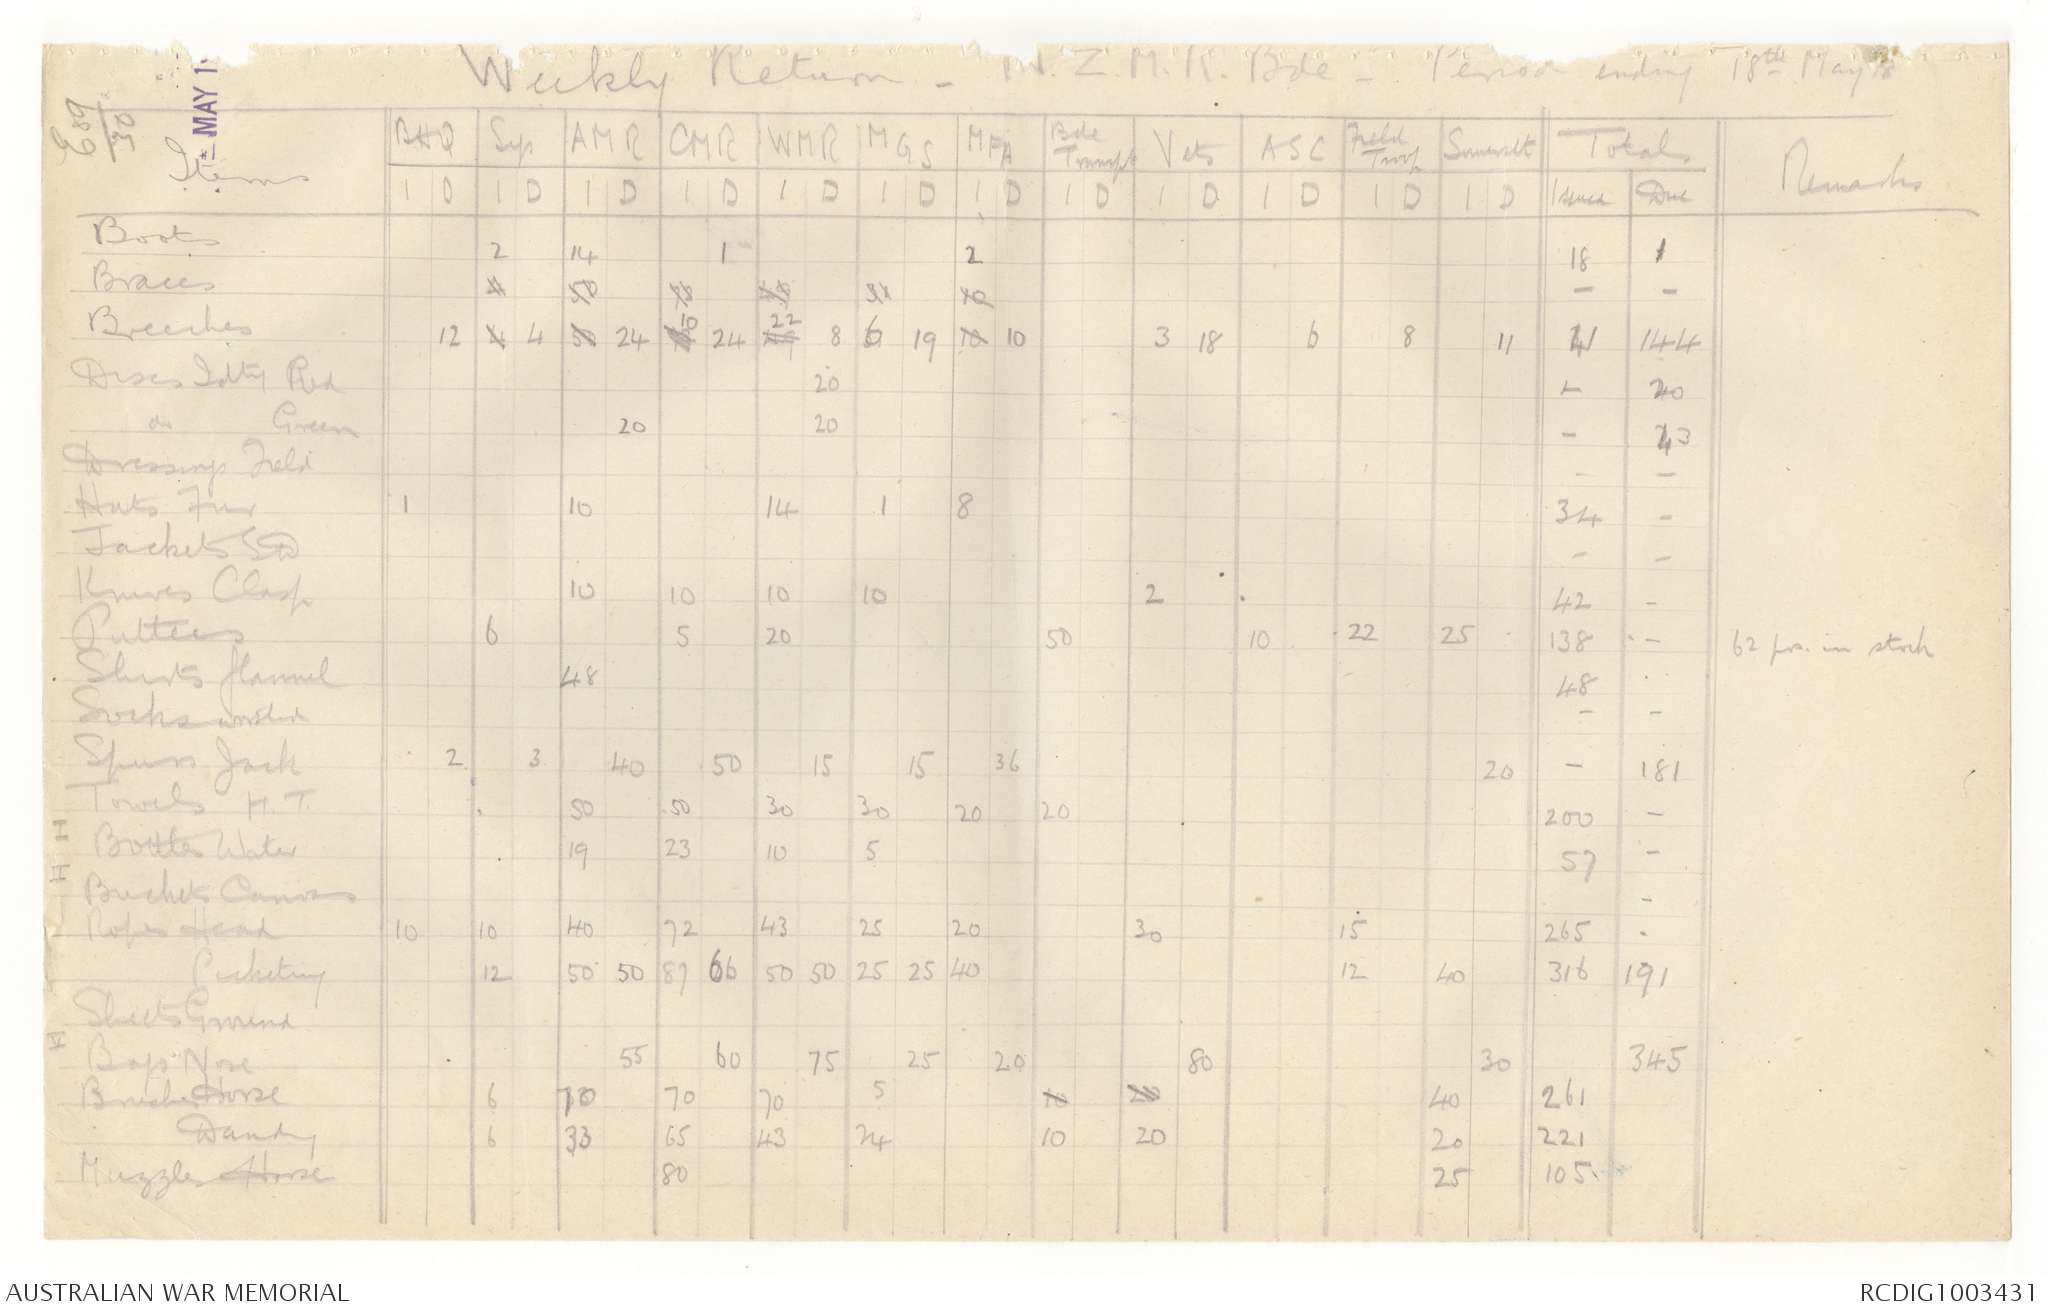 Weekly Return - N.Z.M.R. Bde - Period ending 18th May 18
E 89/30
MAY 1
Items BHQ Sigs AMR CMR WMR MGS MFA Bde Transpt Vets ASC Field Troop Somerset Totals Remarks
I D I D I D I D I D I D I D I D I D I D I D I D Issued Due
Boots 2 14 1 2 18 1
Braces - -
Breeches 12 4 24 10 24 22 8 6 19 10 3 18 6 8 11 41 144
Discs Idty Red 20 - 20
do Green 20 20 - 43
Dressings Field - -
Hats Fur 1 10 14 1 8 34 -
Jackets SD - -
Knives Clasp 10 10 10 10 2 42 -
Puttees 6 5 20 50 10 22 25 138 - 62 prs. in stock
Shirts flannel 48 48
Socks worsted - -
Spurs Jack 2 3 40 50 15 15 36 20 - 181
Towels H.T. 50 50 30 30 20 20 200 -
Bottles Water 19 23 10 5 57 -
Buckets Canvas -
Ropes Head 10 10 40 72 43 25 20 30 15 265
Picketing 12 50 50 87 66 50 50 25 25 40 12 40 316 191
Sheets Ground
Bags Nose 55 60 75 25 20 80 30 345
Brushes Horse 6 70 70 70 5 10 20 40 261
Dandy 6 33 65 43 24 10 20 20 221
Muzzles Horse 80 25 105
AUSTRALIAN WAR MEMORIAL RCDIG1003431